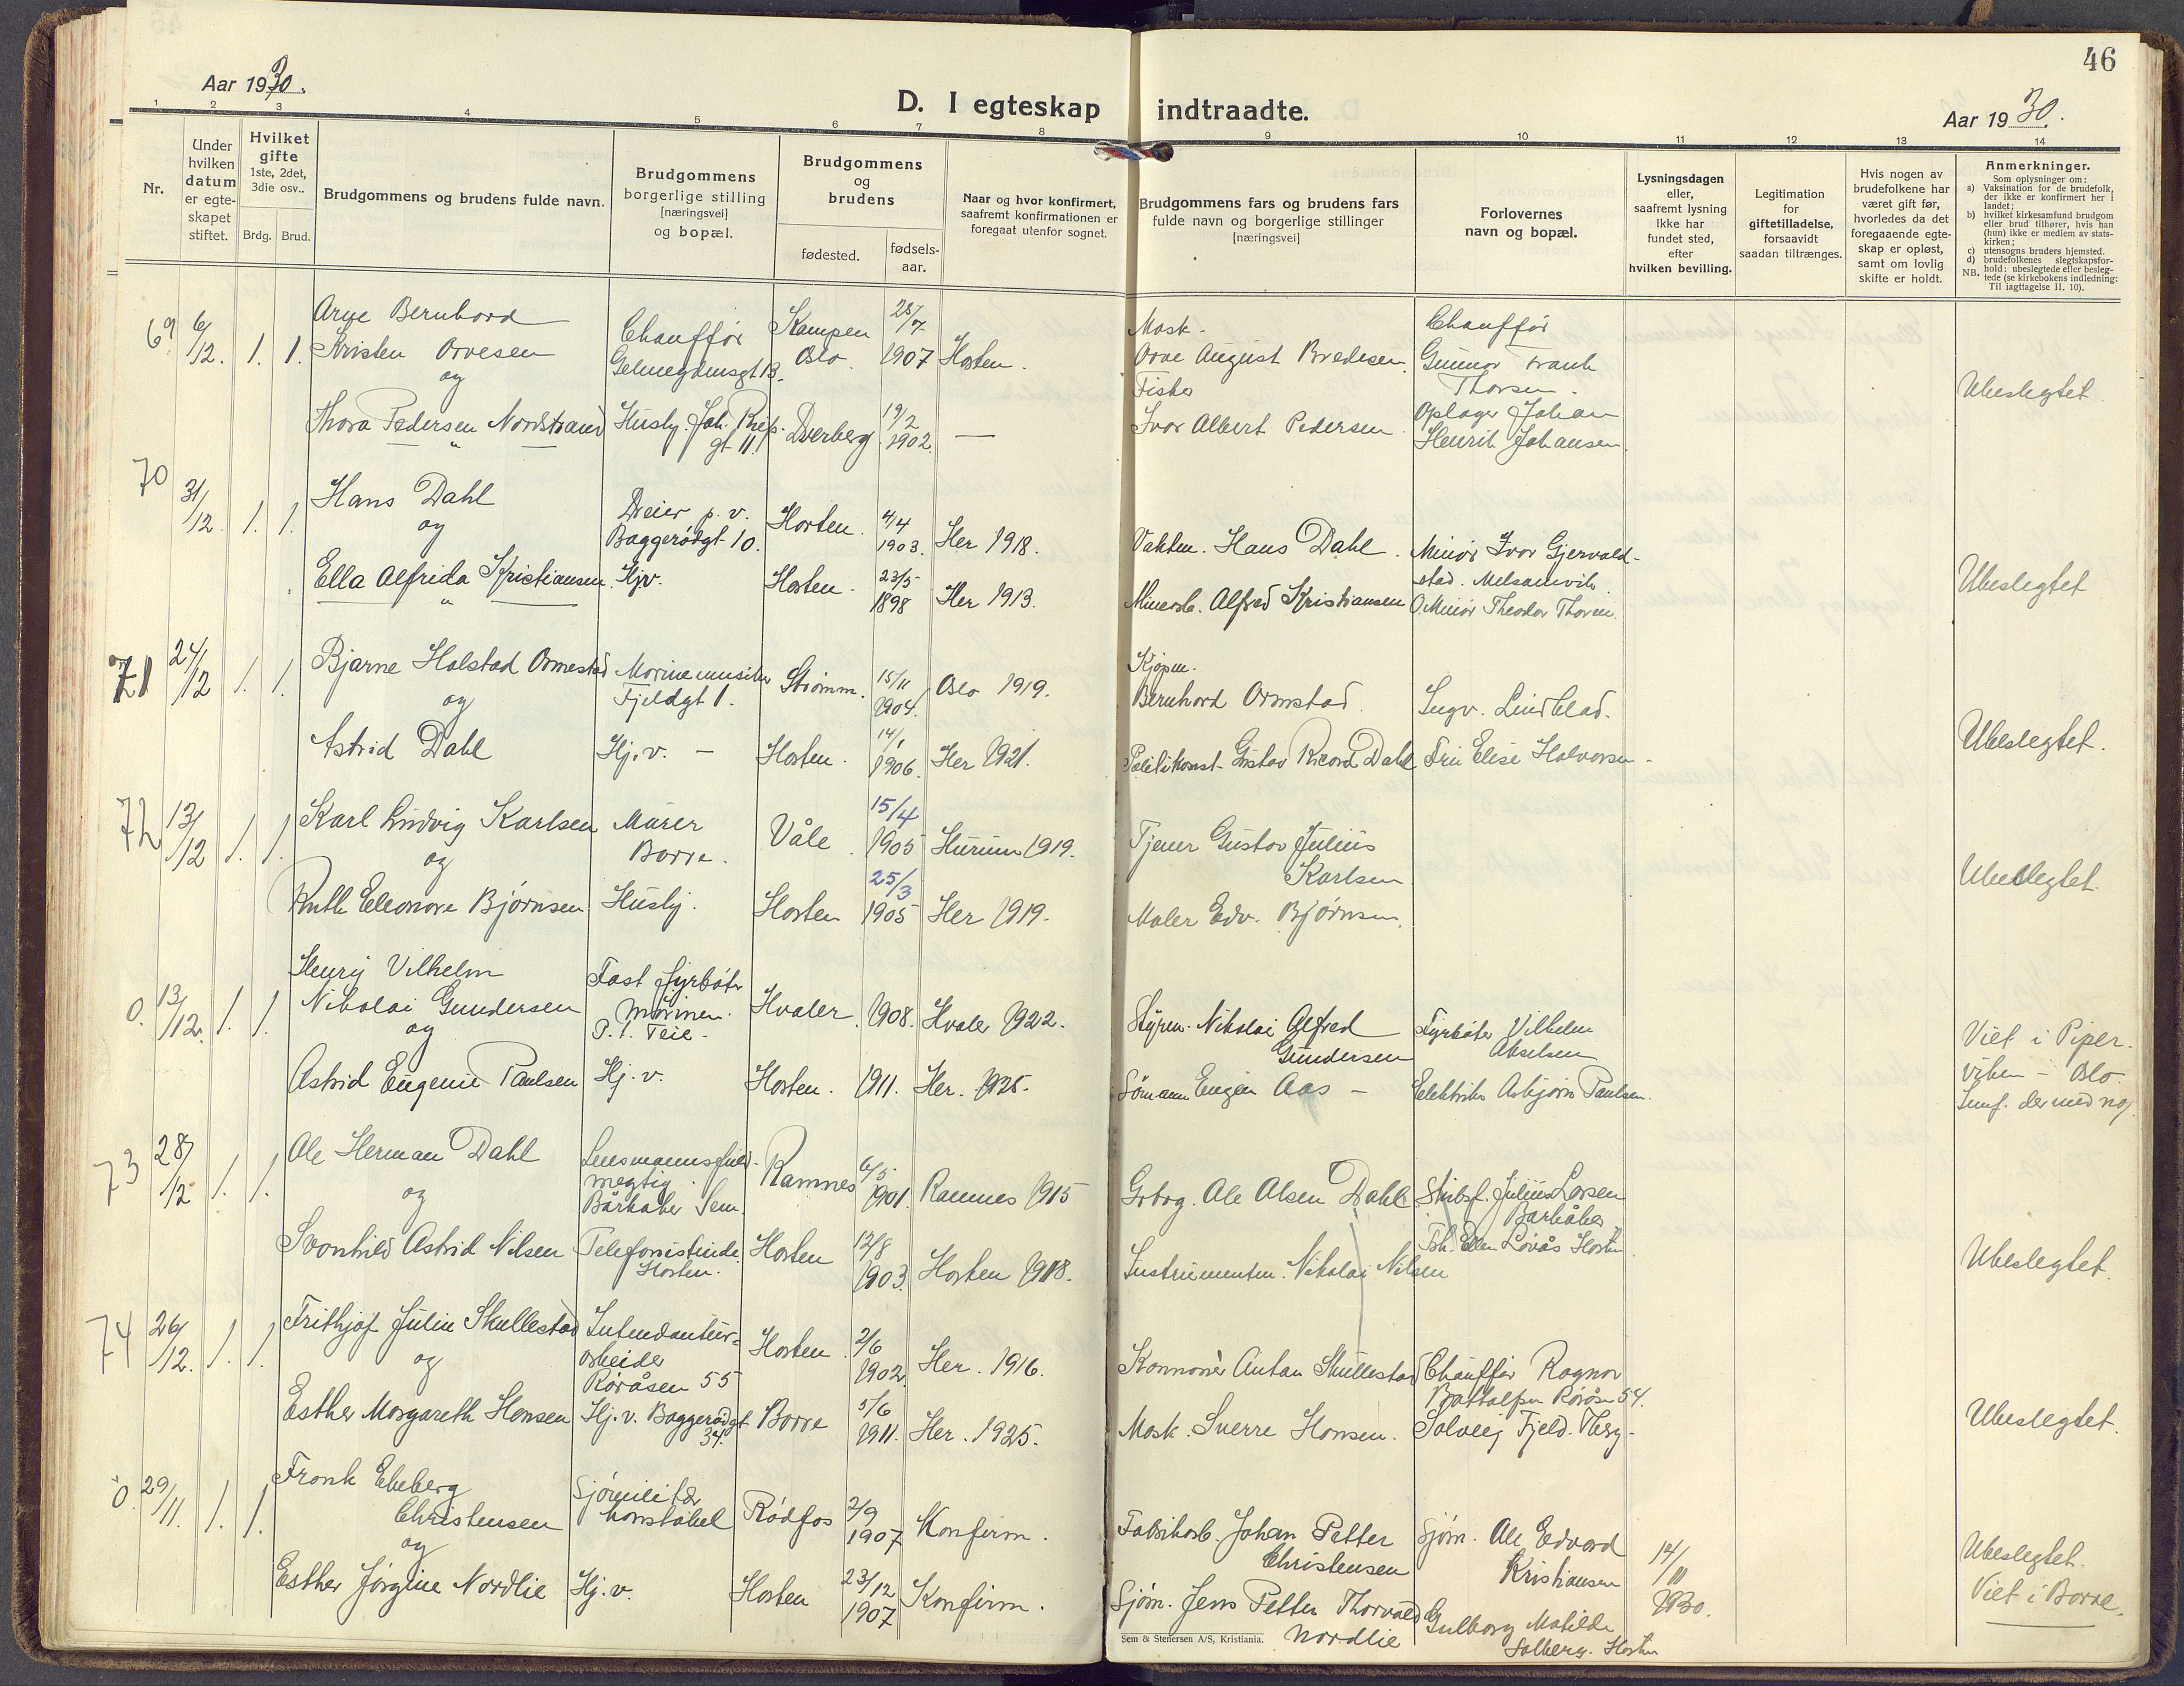 46
Aar 1930.
D. I egteskap indtraadte.
Aar 1930.
1 2 3 4 5 6 7 8 9 10 11 12 13 14
Nr.
Under hvilken datum er egte-skapet stiftet.
Hvilket gifte 1ste, 2det, 3die osv..
Brdg. Brud.
Brudgommens og brudens fulde navn.
Brudgommens borgerlige stilling [næringsvei] og bopæl.
Brudgommens og brudens
fødested.
fødsels-aar.
Naar og hvor konfirmert, saafremt konfirmationen er foregaat utenfor sognet.
Brudgommens fars og brudens fars fulde navn og borgerlige stillinger [næringsvei]
Forlovernes navn og bopæl.
Lysningsdagen eller, saafremt lysning ikke har fundet sted, efter hvilken bevilling.
Legitimation for giftetilladelse, forsaavidt saadan tiltrænges.
Hvis nogen av brudefolkene har været gift før, hvorledes da det foregaaende egte-skap er opløst, samt om lovlig skifte er holdt.
Anmerkninger.
Som oplysninger om:
a) Vaksination for de brudefolk, der ikke er konfirmert her i landet;
b) hvilket kirkesamfund brudgom eller brud tilhører, hvis han (hun) ikke er medlem av stats-kirken;
c) utensogns bruders hjemsted.
d) brudefolkenes slegtskapsfor-
NB. hold: ubeslegtede eller besleg-tede (se kirkebokens indledning: Til iagttagelse II. 10).
69. 6/12. 1. 1.
Arne Bernhard
Kristen Arvesen
og
Thora Pedersen Nordstrand
Chauffør
Husby. Joh.
gt 11.
Kampen
Oslo
Dverberg
28/7
1907
19/2
1902.
Horten.
—
Mask.
Arve August Bredesen.
Fisker
Ivar Albert Pedersen
Chauffør
Gunnar Frank
Thorsen.
Oplager Johan
Henrik Johansen.
Ubeslegtet
70 31/12. 1. 1.
Hans Dahl
og
Ella Alfrida Kristiansen
Dreier p. v.
Baggerødgt 10.
Hjv.
Horten.
Horten.
4/4
1903.
23/5
1898
Her 1918.
Her 1913.
Vaktm. Hans Dahl.
Minerarb. Alfred Kristiansen
Minør Ivar Gjervald-
stad. Melsomvik
O. Minør Theodor Thoren.
Ubeslegtet
71 24/12 1. 1.
Bjarne Halstad Ormestad
og
Astrid Dahl
Marinemusiker
Fjeldgt 1.
Hj.v. —
Strømm.
Horten.
15/11
1904.
14/1
1906.
Oslo 1919.
Her 1921.
Kjøpm.
Bernhard Ormstad.
Politikonst. Gustav Ricard Dahl
Ingv. Lindblad.
Fru Elise Halvorsen
Ubeslegtet.
72 13/12 1. 1.
Karl Ludvig Karlsen
og
Ruth Eleonore Bjørnsen
Murer
Borre.
Husbj.
Våle
Horten
15/4
1905
25/3
1905
Hurum 1919.
Her 1919.
Tjener Gustav Julius
Karlsen
Maler Edv. Bjørnsen.
Ubeslegtet.
0. 13/12. 1. 1.
Henry Vilhelm
Nikolai Gundersen
og
Astrid Eugenie Paulsen
Fast fyrbøter
Marinen.
P. t. Teie.
Hj. v.
Hvaler
Horten.
1908.
1911.
Hvaler 1922.
Her. 1925.
Styrm. Nikolai Alfred
Gundersen
Sømann Eugen Aas —
Fyrbøter Vilhelm
Akselsen
Elektriker Asbjørn Paulsen.
Viet i Piper-
viken — Oslo.
Innf. der med no.
73 28/12 1. 1.
Ole Herman Dahl
og
Svanhild Astrid Nilsen
Lensmannsfuld-
megtig.
Bårkaker Sem.
Telefonistinde
Horten.
Ramnes
Horten
6/5
1901.
12/8
1903.
Ramnes 1915
Horten 1918.
Grbrg. Ole Olsen Dahl
Instrumentm. Nikolai Nilsen
Skibsf. Julius Larsen
Barkåker
Frk. Ellen Løvås Horten
Ubeslegtet.
74 26/12. 1. 1.
Frithjof Julin Skullestad
og
Esther Margareth Hansen
Intendantur-
arbeider
Røråsen 55
Hj. v. Baggerødgt
34.
Horten
Borre
2/6
1902.
5/6
1911.
Her. 1916.
Her. 1925.
Kannonér Anton Skullestad
Mask. Sverre Hansen.
Chauffør Ragnar
Battalfsen Røråsen 54.
Solveig Fjeld.
Ubeslegtet.
0. 29/11. 1. 1.
Frank Ekeberg
Christensen
og
Esther Jørgine Nordlie
Sjømilitær
konstabel
Hj. v.
Rødfos
Horten
2/9
1907
23/12
1907
Konfirm.
Konfirm.
Fabrikarb. Johan Petter
Christensen
Sjøm. Jens Petter Thorvald
Nordlie
Sjøm. Ole Edvard
Kristiansen
Gulborg Matilde
Solberg. Horten
14/11
1930.
Ubeslegtet.
Viet i Borre.
Sem & Stenersen A/S, Kristiania.